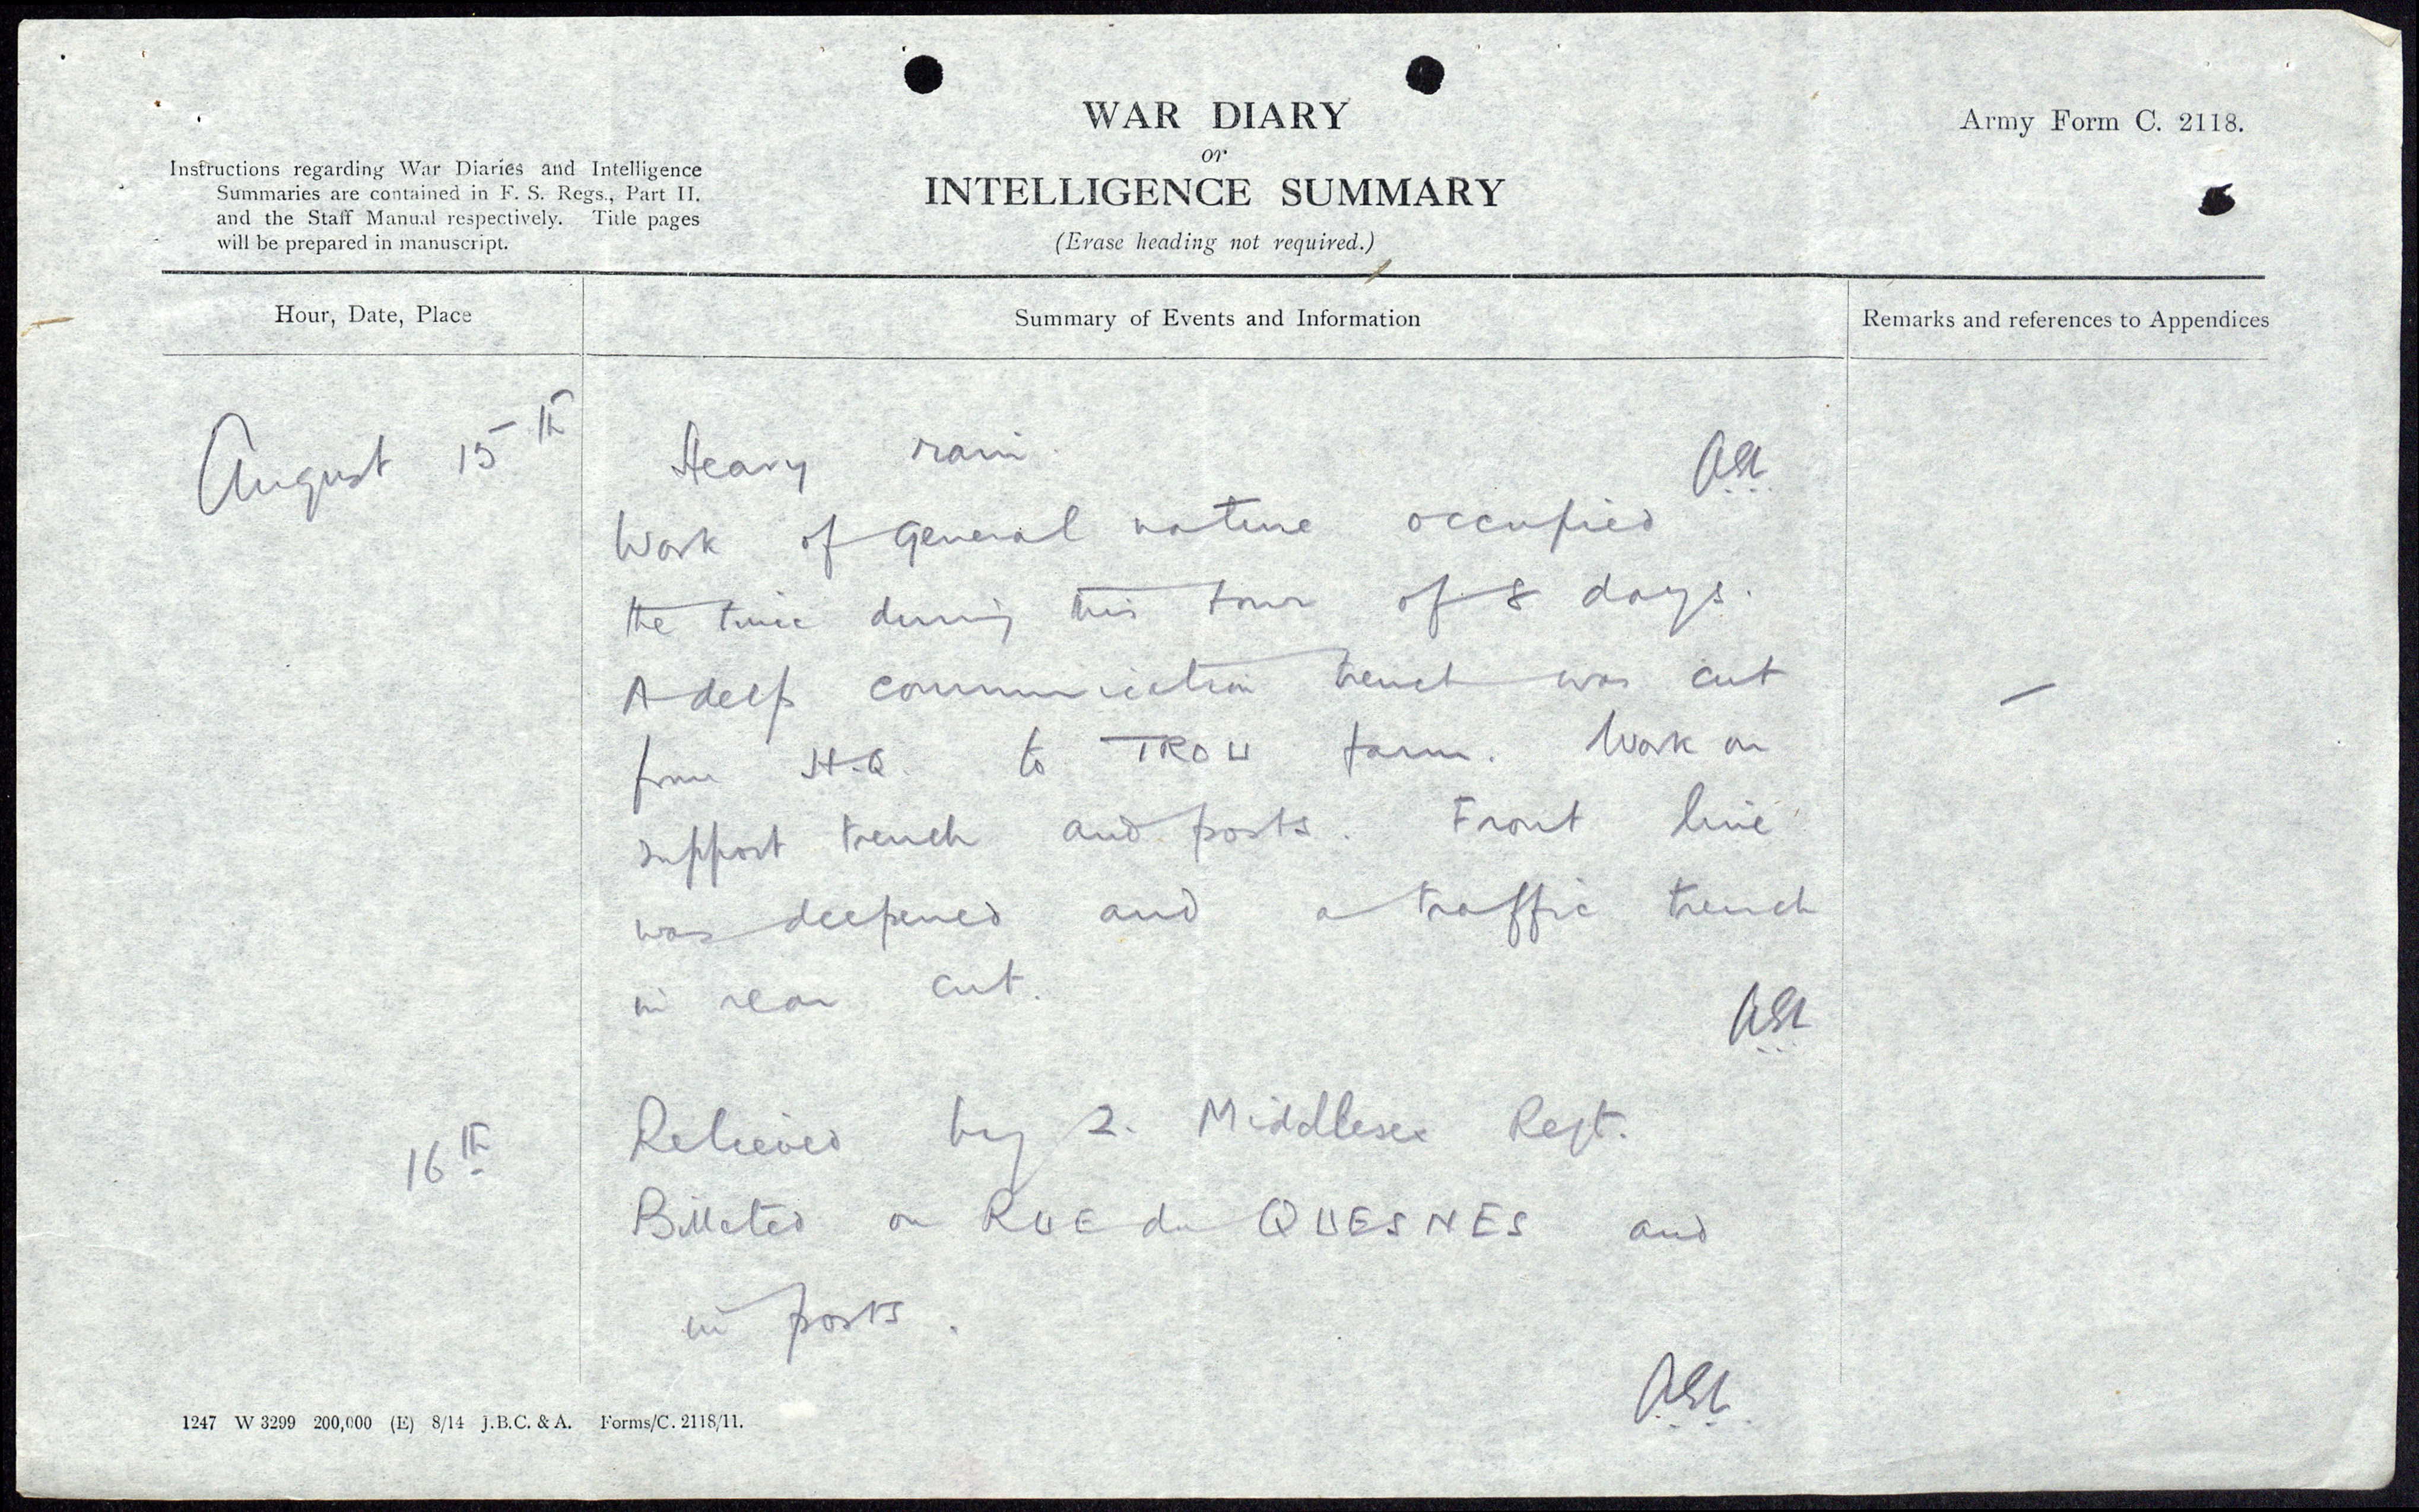 WAR DIARY
or
INTELLIGENCE SUMMARY
(Erase heading not required.)
Army Form C. 2118.
Instructions regarding War Diaries and Intelligence
Summaries are contained in F. S. Regs., Part II.
and the Staff Manual respectively. Title pages
will be prepared in manuscript.
Hour, Date, Place
Summary of Events and Information
Remarks and references to Appendices
August 15th
Heavy rain.
Work of general nature occupied
the time during this tour of 8 days.
A deep communication trench was cut
from H.Q. to TROU farm. Work on
support trench and posts. Front line
was deepened and a traffic trench
in rear cut.
16th
Relieved by 2. Middlesex Regt.
Billeted on RUE du QUESNES and
in posts.
1247 W 3299 200,000 (E) 8/14 J.B.C. & A. Forms/C. 2118/11.